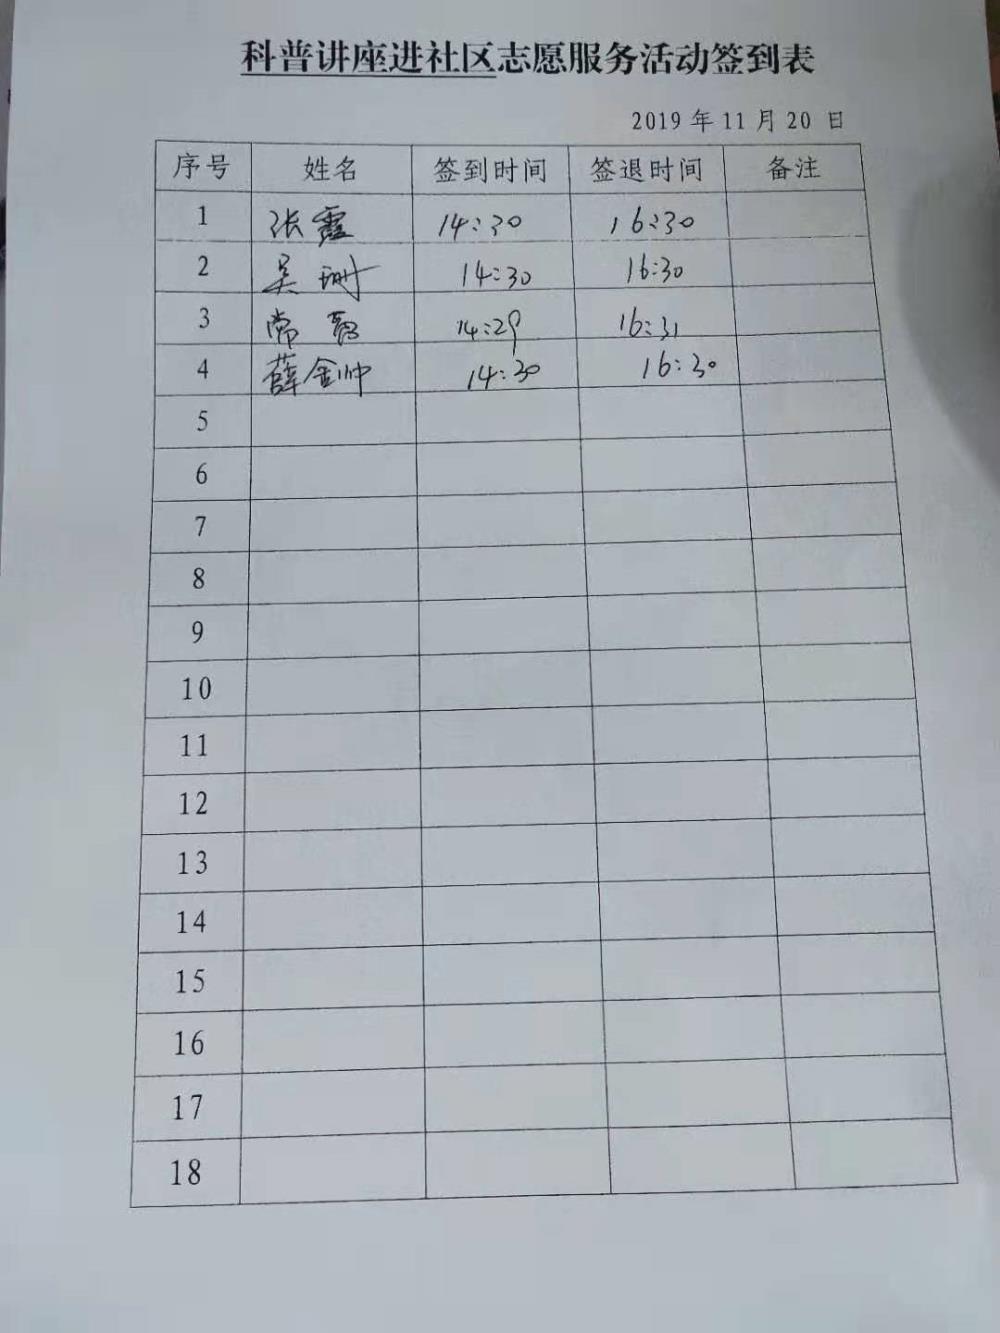 科普讲座进社区志愿服务活动签到表
2019 年 11 月 20 日
序号 姓名 签到时间 签退时间 备注
1 张霞 14:30 16:30
2 吴珊 14:30 16:30
3 常 14:29 16:31
4 薛金帅 14:30 16:30
5
6
7
8
9
10
11
12
13
14
15
16
17
18